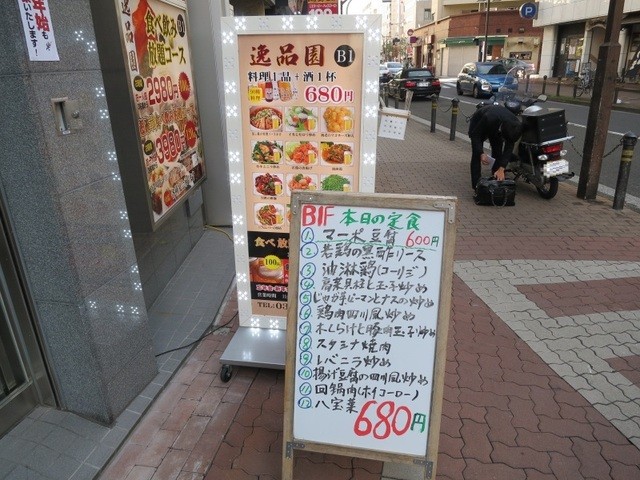 年始も
いたします!!
食べ飲み
放題コース
2980円
3980円
逸品園 B1
料理1品+酒1杯
680円
食べ飲
100
営業時間
TEL.03
P
B1F 本日の定食
① マーボ豆腐 600円
② 若鶏の黒酢ソース
③ 油淋鶏(ユーリンジ)
⑤ じゃが芋ピーマンとナスの炒め
⑥ 鶏肉四川風炒め
⑦ 木くらげと豚肉玉子炒め
⑧ スタミナ焼肉
⑨ レバニラ炒め
⑩ 揚げ豆腐の四川風炒め
⑪ 回鍋肉(ホイコーロー)
⑫ 八宝菜 680円